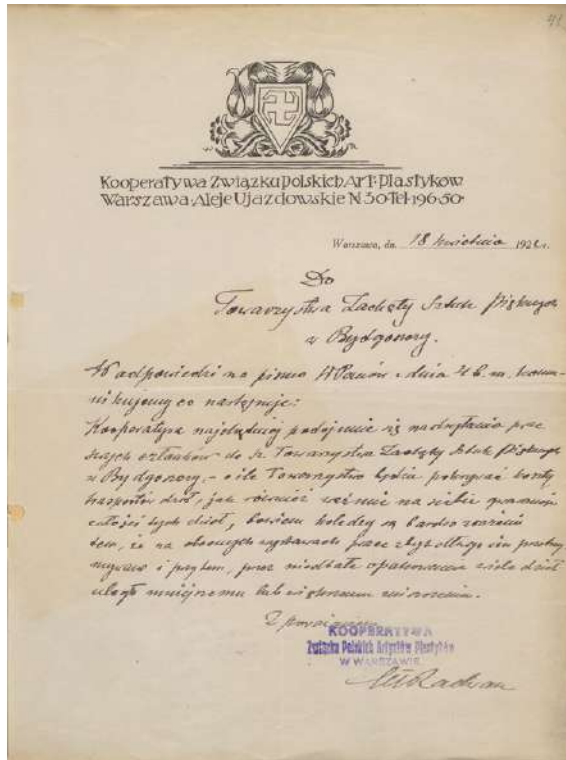 41
Kooperatywa Związku Polskich Art. Plastyków
Warszawa Aleje Ujazdowskie N 30 Tel. 196-50
Warszawa, dn. 18 kwietnia 192 r.
Do
Towarzystwa Zachęty Sztuk Pięknych
w Bydgoszczy.
W odpowiedzi na pismo WPanów z dnia 4 b.m. komu-
nikujemy co następuje:
Kooperatywa najchętniej podejmie się nadsyłania prac
swych członków do Towarzystwa Zachęty Sztuk Pięknych
w Bydgoszczy, - o ile Towarzystwo będzie pokrywać koszty
transportów dzieł, jak również weźmie na siebie
całość tych dzieł, bowiem koledzy są bardzo
tem, że na wystawach prace zbyt długo
i przytem, przez niedbałe opakowanie wiele dzieł
uległo mniejszemu lub większemu zniszczeniu.
Z poważaniem
KOOPERATYWA
Związku Polskich Artystów Plastyków
W WARSZAWIE